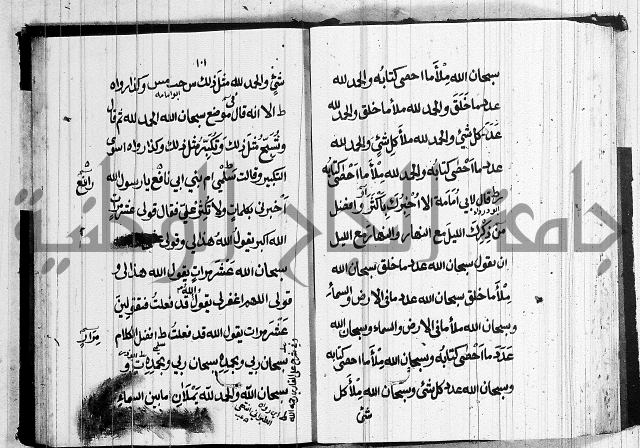 سبحان الله ملأ ما احصى كتابه والحمد لله
عدد ما خلق والحمد لله ملأ ما خلق والحمد لله
عدد كل شئ والحمد لله ملأ كل شئ والحمد لله
عدد ما احصى كتابه والحمد لله ملأ ما احصى كتابه
ط قال لابي امامة الا اخبرك باكثر وافضل
ابو درداء
من ذكرك الليل مع النهار والنهار مع الليل
ان تقول سبحان الله عدد ما خلق سبحان الله
ملأ ما خلق سبحان الله عدد ما في الارض والسماء
وسبحان الله ملأ ما في الارض والسماء وسبحان الله
عدد ما احصى كتابه وسبحان الله ملأ ما احصى كتابه
وسبحان الله عدد كل شئ وسبحان الله ملأ كل
شئ
١٠١
شئ والحمد لله مثل ذلك س حب مس وكذا رواه
ابو امامه
ط الا انه قال في موضع سبحان الله الحمد لله ثم قال
وتسبح مثل ذلك وتكبر مثل ذلك وكذا رواه ا سوى
التكبير وقالت سلمى ام بني ابي رافع يا رسول الله
رافع
اخبرني بكلمات ولا تكثر علي فقال قولي عشر مرات
الله اكبر يقول الله هذا لي وقولي
سبحان الله عشر مرات يقول الله هذا لي و
قولي اللهم اغفر لي يقول الله قد فعلت فتقولين
عشر مرات يقول الله قد فعلت ط افضل الكلام
مرار
سبحان ربي وبحمده سبحان ربي وبحمده ت و
سبحان الله والحمد لله يملآن ما بين السماء
جامعة النجاح الوطنية